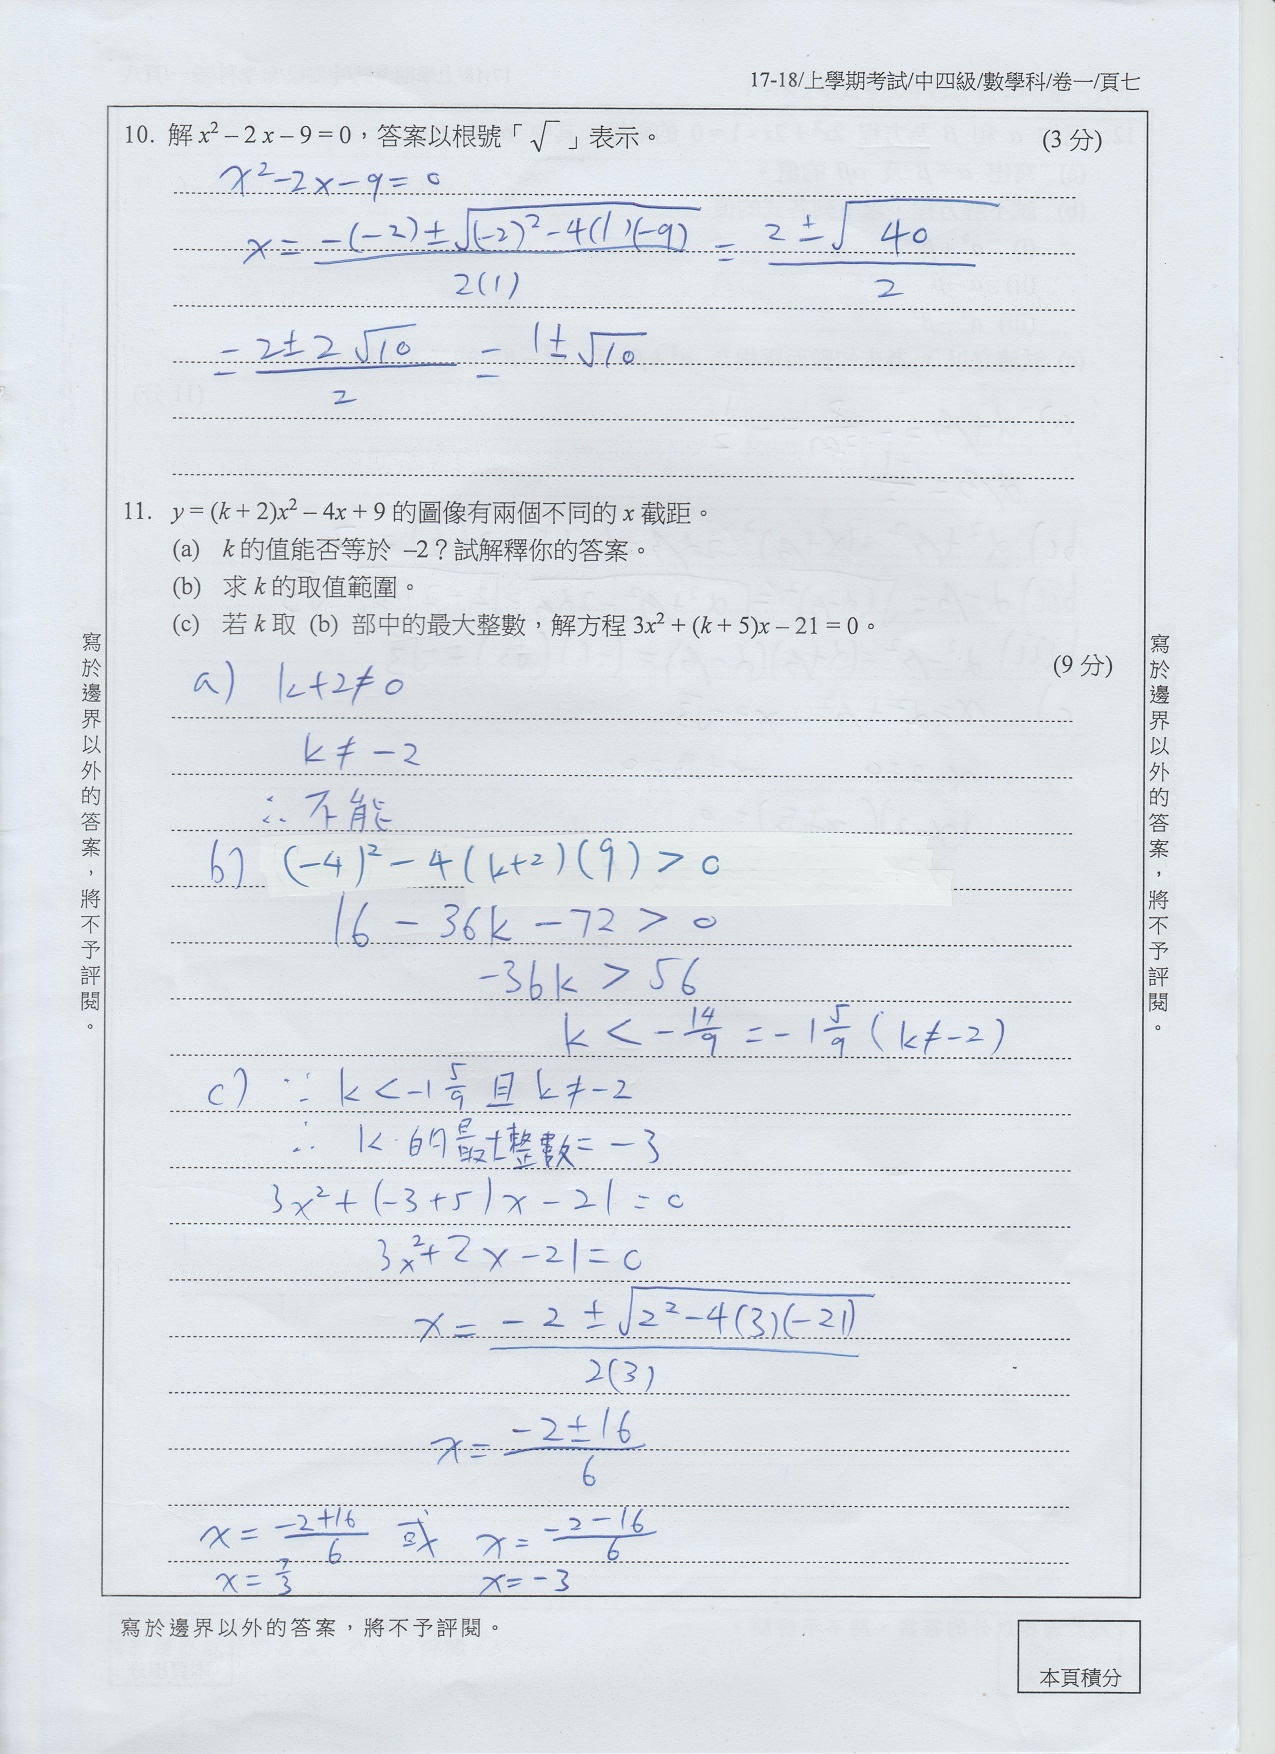 17-18/上學期考試/中四級/數學科/卷一/頁七
10. 解 x² – 2 x – 9 = 0，答案以根號「 √ 」表示。 (3 分)
x²-2x-9=0
x = (-(-2)±√((-2)²-4(1)(-9)))/2(1) = (2±√40)/2
= (2±2√10)/2 = 1±√10
11. y = (k + 2)x² – 4x + 9 的圖像有兩個不同的 x 截距。
(a) k 的值能否等於 –2？試解釋你的答案。
(b) 求 k 的取值範圍。
(c) 若 k 取 (b) 部中的最大整數，解方程 3x² + (k + 5)x – 21 = 0。
(9 分)
a) k+2≠0
k≠-2
∴不能
b) (-4)²-4(k+2)(9)>0
16-36k-72>0
-36k>56
k<-14/9=-1 5/9 (k≠-2)
c) ∵ k<-1 5/9 且 k≠-2
∴ k 的最大整數=-3
3x²+(-3+5)x-21=0
3x²+2x-21=0
x = (-2±√(2²-4(3)(-21)))/2(3)
x = (-2±16)/6
x = (-2+16)/6 或 x = (-2-16)/6
x = 7/3 x=-3
寫於邊界以外的答案，將不予評閱。
寫於邊界以外的答案，將不予評閱。
寫於邊界以外的答案，將不予評閱。
本頁積分